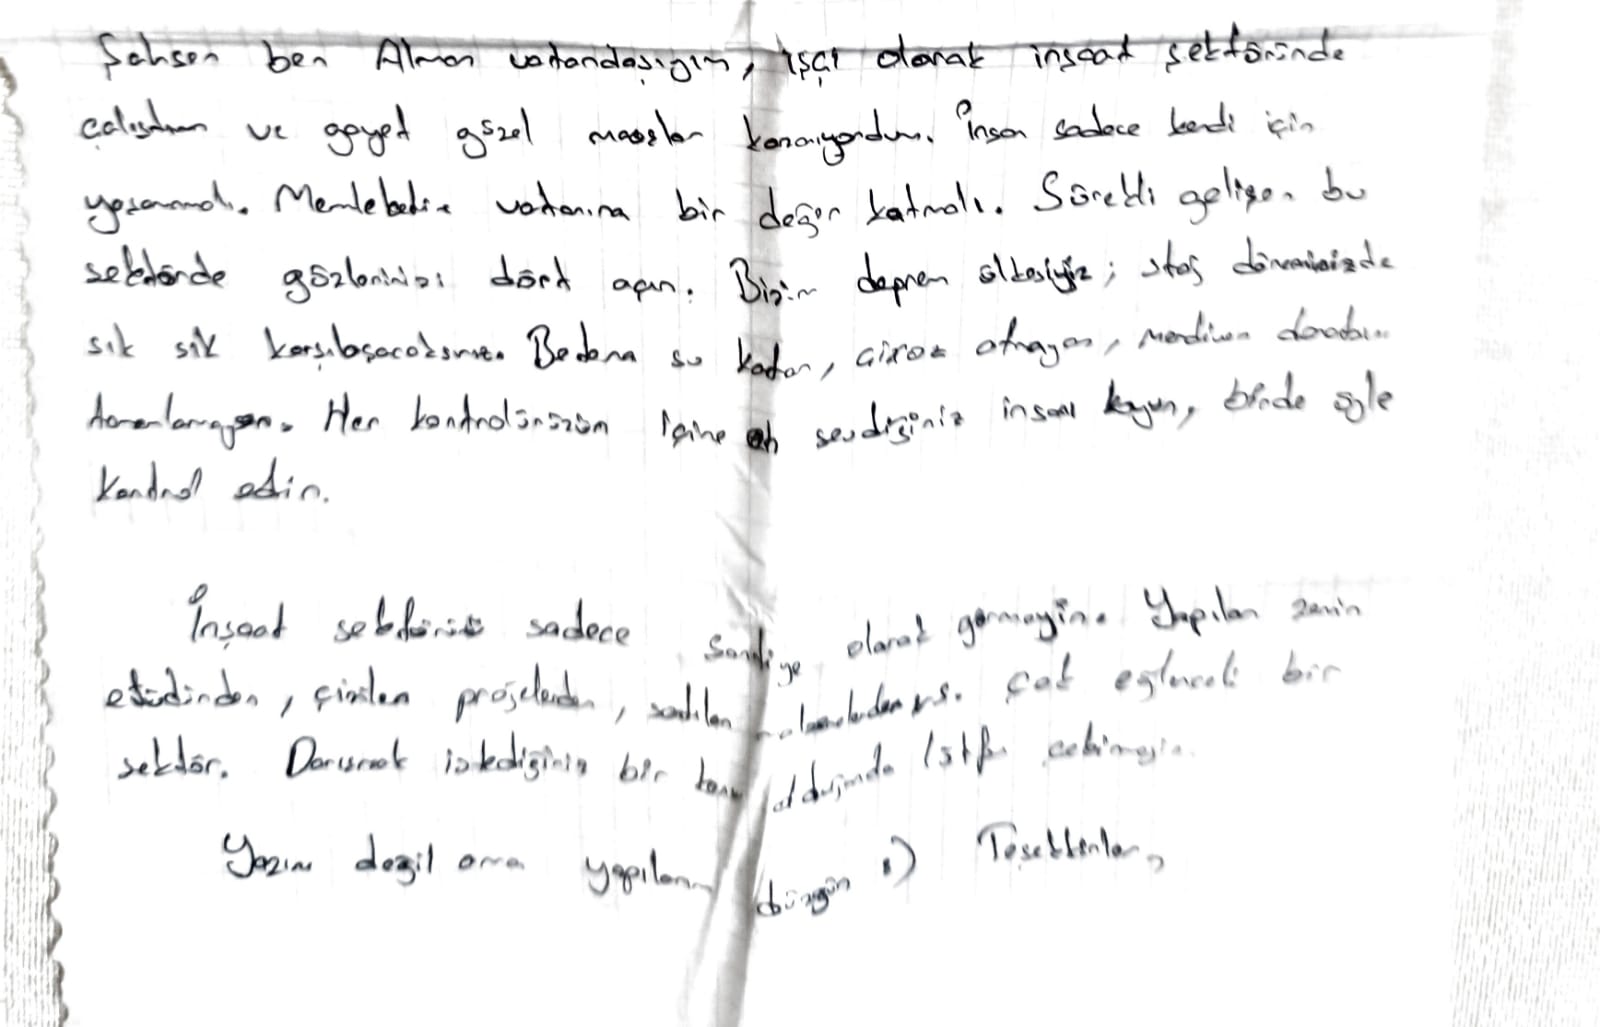 Şahsen ben Alman vatandaşıyım, işçi olarak inşaat sektöründe
çalıştım ve gayet güzel maaşlar kazanıyordum. İnsan sadece kendi için
yaşamamalı. Memleketine vatanına bir değer katmalı. Sürekli gelişen bu
sektörde gözlerinizi dört açın. Bizim deprem ülkesiyiz; staj döneminizde
sık sık karşılaşacaksınız. Betona su katan, çiroz atmayan, merdiven
tamamlamayan. Her kontrolünüzün içine sevdiğiniz insanı koyun, öyle
kontrol edin.
İnşaat sektörünü sadece şantiye olarak görmeyin. Yapılan zemin
etüdünden, çizilen projelerden, satılan malzemelerden vs. Çok eğlenceli bir
sektör. Danışmak istediğiniz bir konu olduğunda lütfen çekinmeyin.
Yazım değil ama yapılarım düzgün :) Teşekkürler,